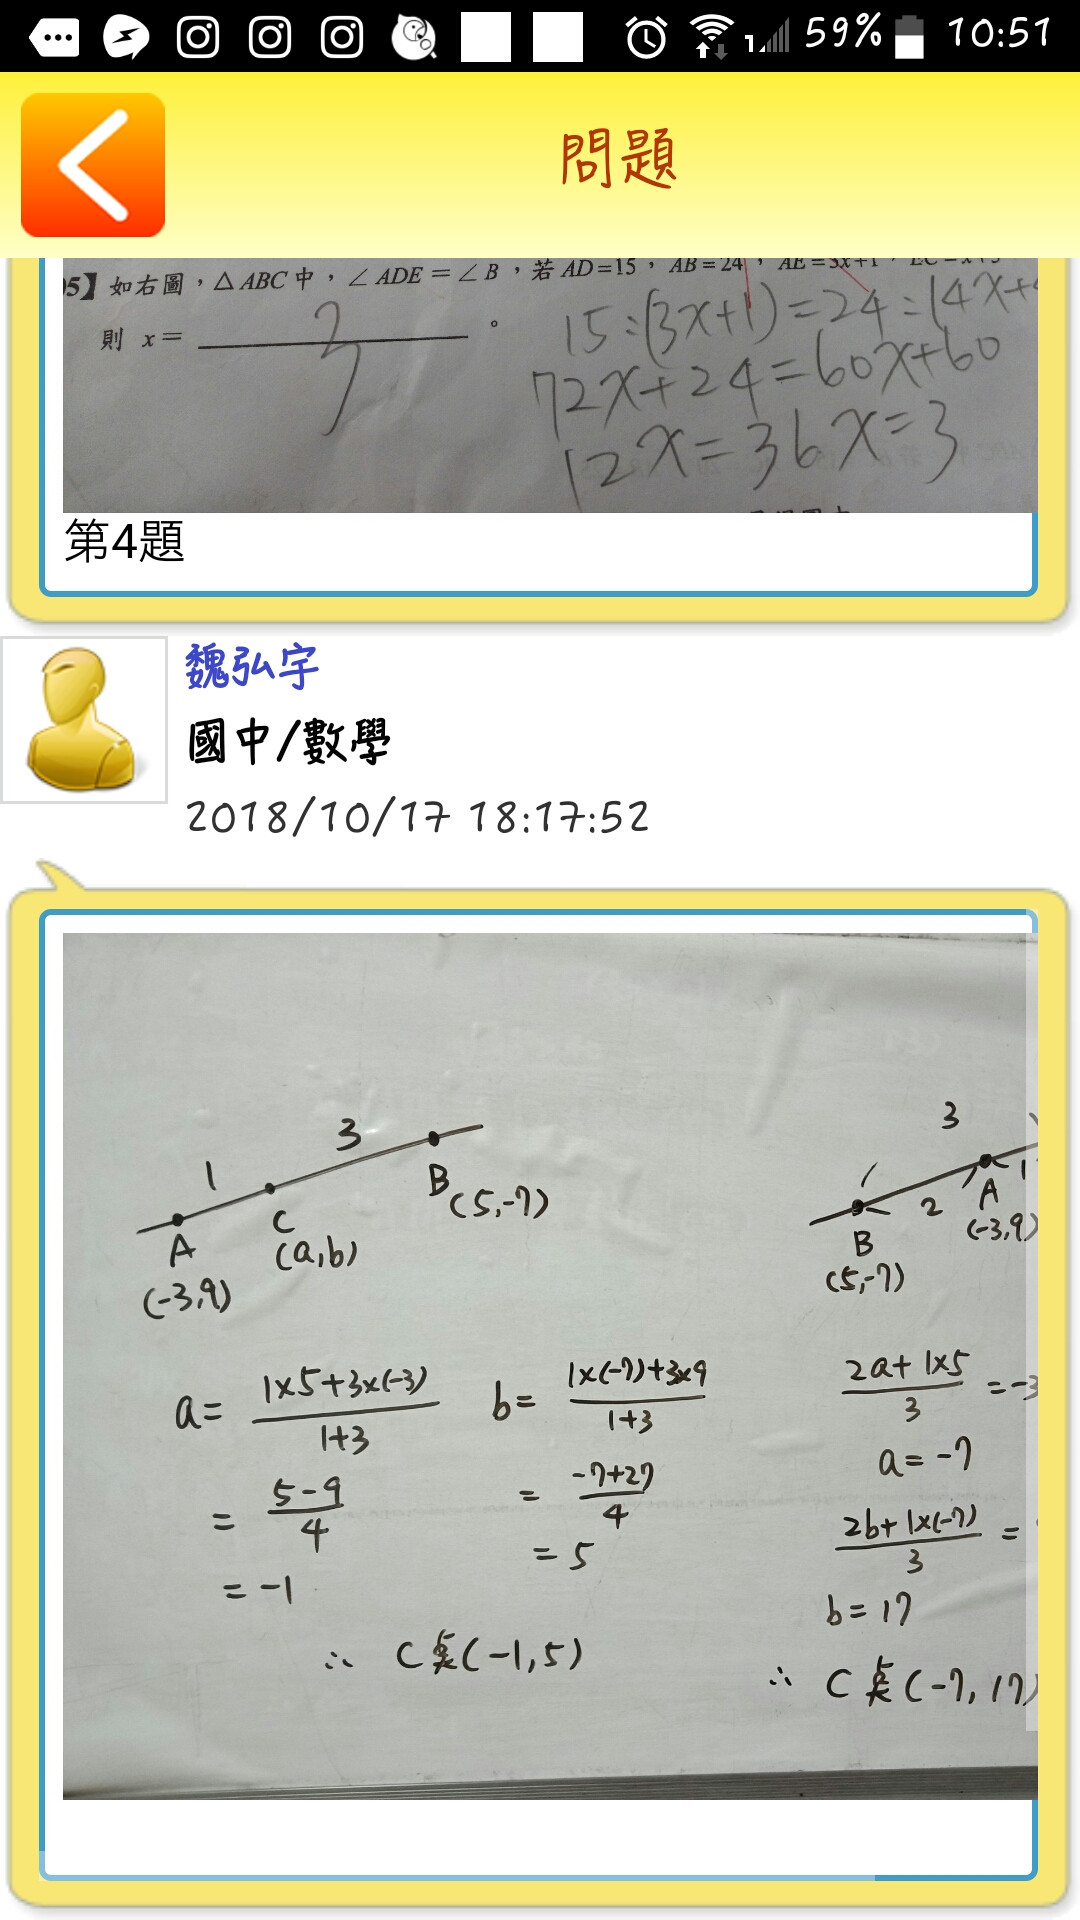 59% 10:51
問題
05】如右圖，△ABC中，∠ADE=∠B，若AD=15，AB=24，AE=3x+1，EC=x+3
則 x= 3 。
15:(3x+1)=24:(4x+4
72x+24=60x+60
12x=36 x=3
第4題
魏弘宇
國中/數學
2018/10/17 18:17:52
1 3
A C B
(-3,9) (a,b) (5,-7)
a= 1×5+3×(-3) / 1+3
= 5-9 / 4
= -1
b= 1×(-7)+3×9 / 1+3
= -7+27 / 4
= 5
∴ C點(-1,5)
3
2 1
B A
(5,-7) (-3,9)
2a+1×5 / 3 =-3
a=-7
2b+1×(-7) / 3 =
b=17
∴ C點(-7,17)